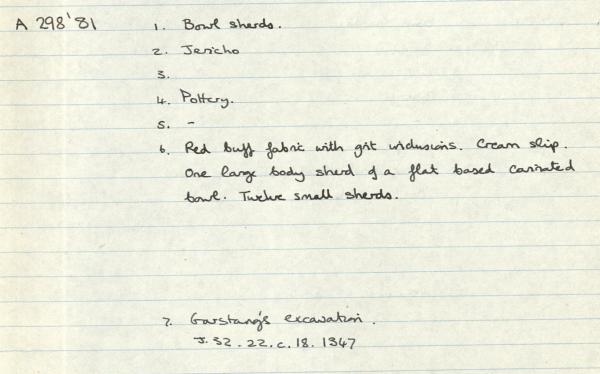 A 298'81
1. Bowl sherds.
2. Jericho
3.
4. Pottery.
5. -
6. Red buff fabric with grit inclusions. Cream slip.
One large body sherd of a flat based carinated
bowl. Twelve small sherds.
7. Garstang's excavation.
J. 32. 22. c. 18. 1347